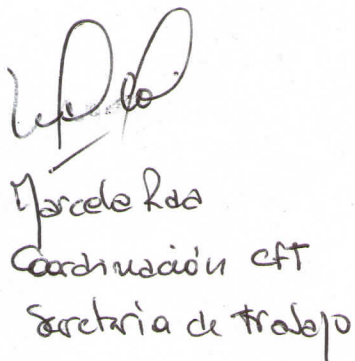 Marcela Raa
Coordinación CFT
Secretaria de Trabajo